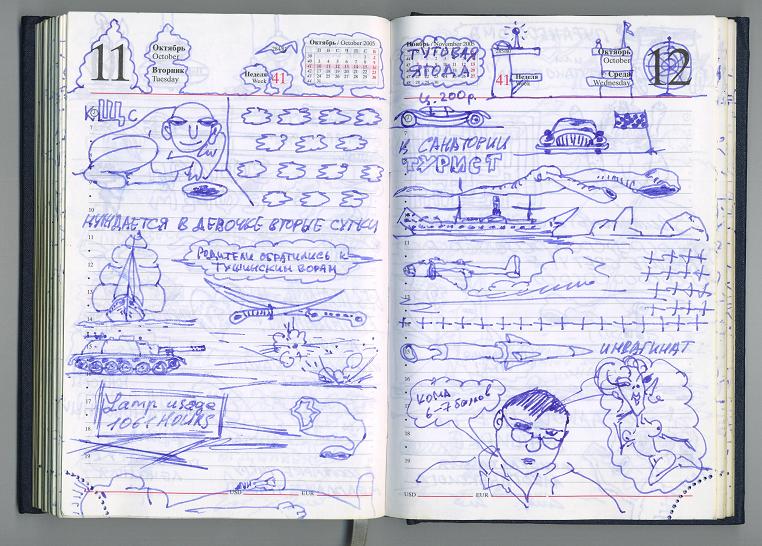 11
Октябрь
October
Вторник
Tuesday
Неделя
Week
41
Октябрь / October 2005
КЩЩС
НУЖДАЕТСЯ В ДЕВОЧКЕ ВТОРЫЕ СУТКИ
РОДИТЕЛИ ОБРАТИЛИСЬ К
ТУШИНСКИМ ВОРАМ
Lamp usage
1061 HOURS
USD
EUR
Ноябрь / November 2005
ТУТОВАЯ
ЯГОДА
Ц. 200р.
41
Неделя
Week
Октябрь
October
Среда
Wednesday
12
В САНАТОРИИ
ТУРИСТ
ИНВАГИНАТ
КОМА
6-7 балов
USD
EUR